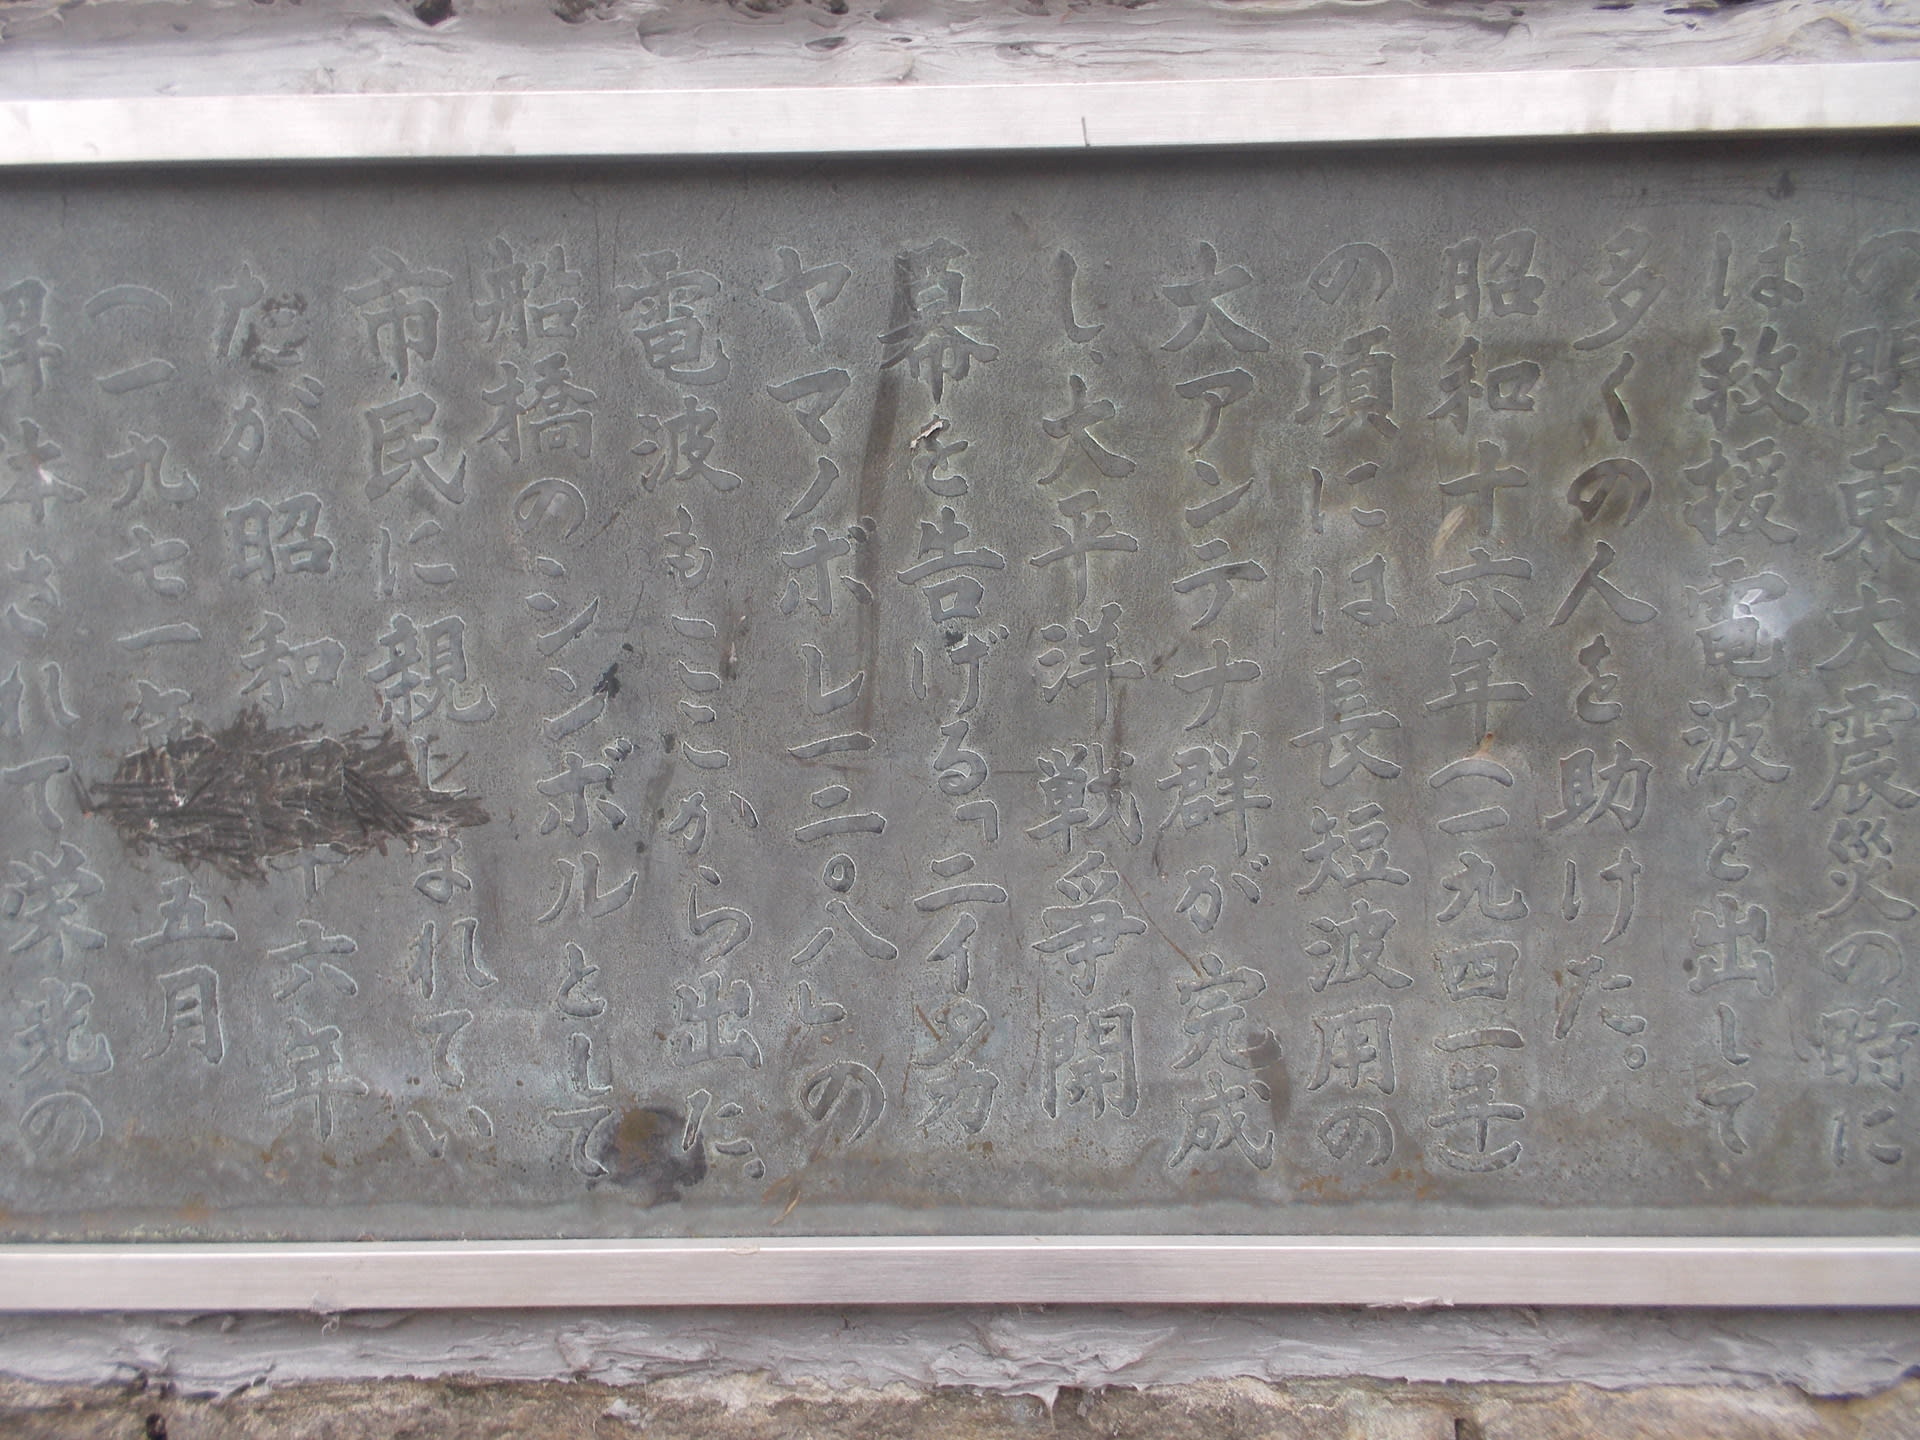 の関東大震災の時に
は救援電波を出して
多くの人を助けた。
昭和十六年(一九四一年)
の頃には長短波用の
大アンテナ群が完成
し、大平洋戦争開
幕を告げる「ニイタカ
ヤマノボレ一二〇八」の
電波もここから出た、
船橋のシンボルとして
市民に親しまれてい
たが昭和四十六年
(一九七一年五月
解体されて栄光の